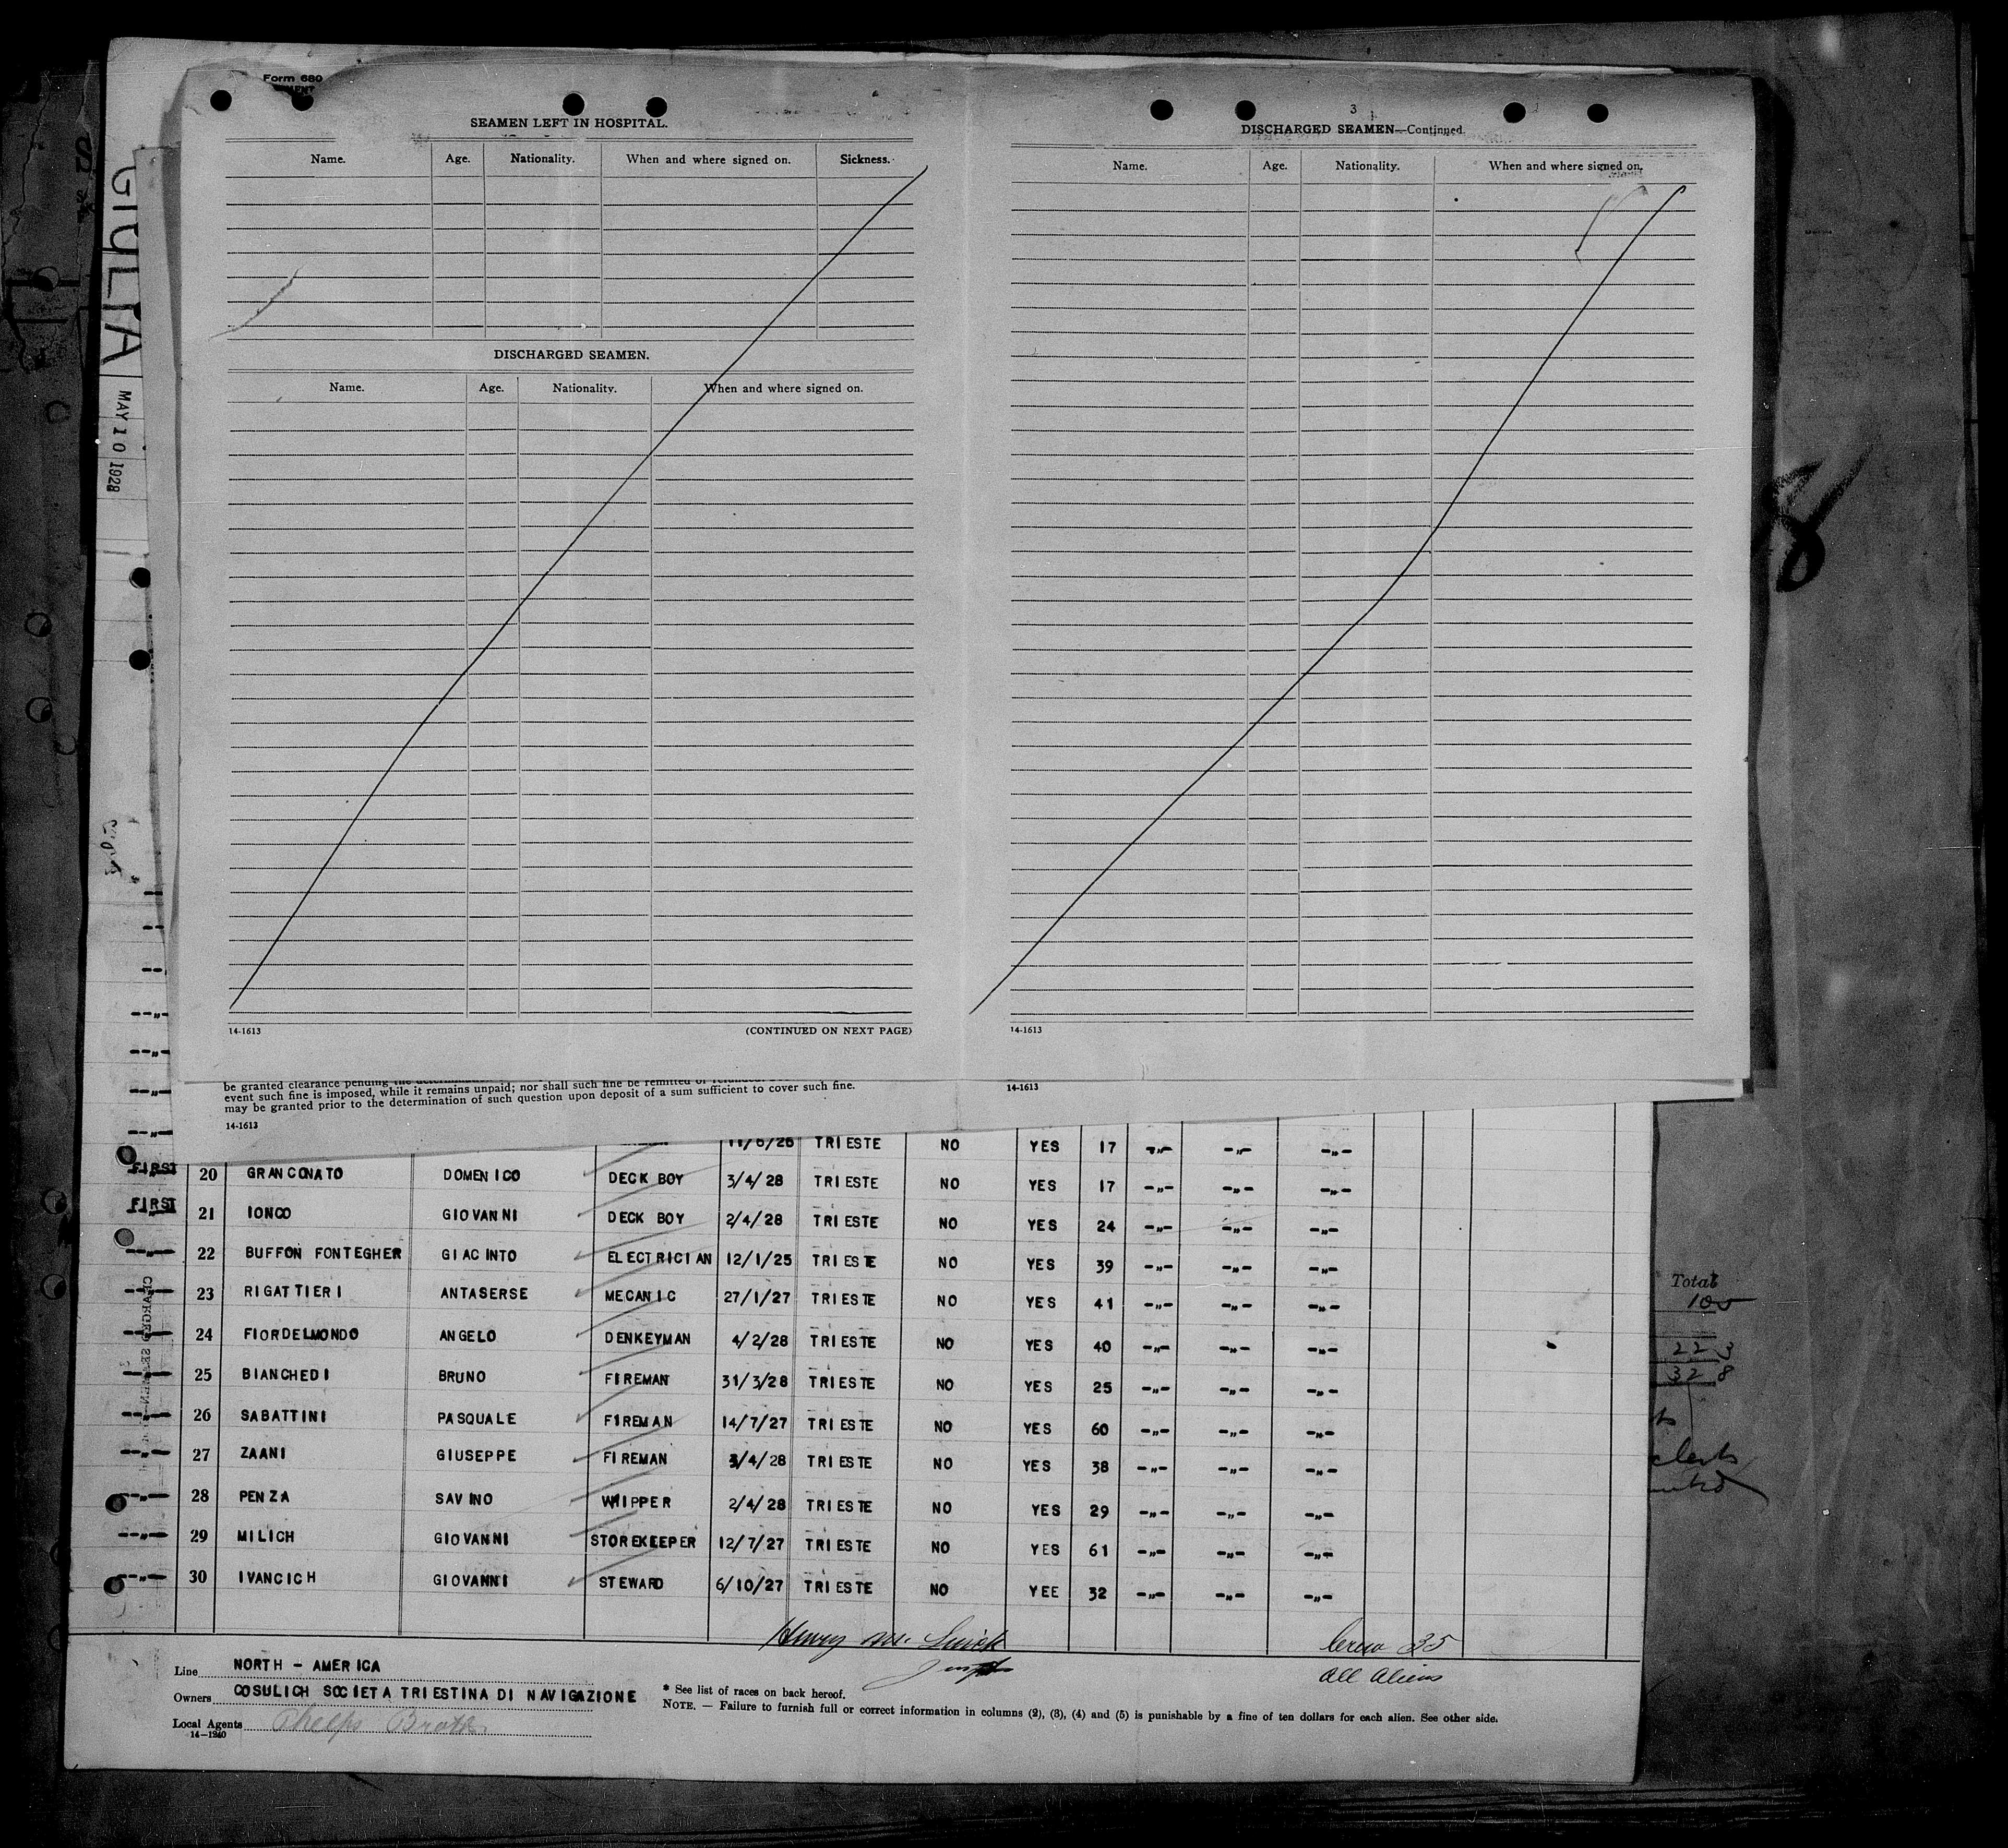 Form 680
SEAMEN LEFT IN HOSPITAL.
Name. Age. Nationality. When and where signed on. Sickness.
DISCHARGED SEAMEN.
Name. Age. Nationality. When and where signed on.
14-1613 (CONTINUED ON NEXT PAGE)
3
DISCHARGED SEAMEN—Continued.
Name. Age. Nationality. When and where signed on.
14-1613
GIULIA
MAY 10 1928
8
be granted clearance pending the
event such fine is imposed, while it remains unpaid; nor shall such fine be remitted or refunded.
may be granted prior to the determination of such question upon deposit of a sum sufficient to cover such fine.
14-1613
14-1613
11/6/26 TRIESTE NO YES 17 -"- -"- -"-
FIRST 20 GRANCONATO DOMENICO DECK BOY 3/4/28 TRIESTE NO YES 17 -"- -"- -"-
FIRST 21 IONCO GIOVANNI DECK BOY 2/4/28 TRIESTE NO YES 24 -"- -"- -"-
--"-- 22 BUFFON FONTEGHER GIACINTO ELECTRICIAN 12/1/25 TRIESTE NO YES 39 -"- -"- -"-
--"-- 23 RIGATTIERI ANTASERSE MECANIC 27/1/27 TRIESTE NO YES 41 -"- -"- -"-
--"-- 24 FIORDELMONDO ANGELO DENKEYMAN 4/2/28 TRIESTE NO YES 40 -"- -"- -"-
--"-- 25 BIANCHEDI BRUNO FIREMAN 31/3/28 TRIESTE NO YES 25 -"- -"- -"-
--"-- 26 SABATTINI PASQUALE FIREMAN 14/7/27 TRIESTE NO YES 60 -"- -"- -"-
--"-- 27 ZAANI GIUSEPPE FIREMAN 3/4/28 TRIESTE NO YES 38 -"- -"- -"-
--"-- 28 PENZA SAVINO WHIPPER 2/4/28 TRIESTE NO YES 29 -"- -"- -"-
--"-- 29 MILICH GIOVANNI STOREKEEPER 12/7/27 TRIESTE NO YES 61 -"- -"- -"-
--"-- 30 IVANCICH GIOVANNI STEWARD 6/10/27 TRIESTE NO YEE 32 -"- -"- -"-
Total
105
223
328
Henry
Crew 35
all aliens
Line NORTH - AMERICA
Owners COSULICH SOCIETA TRIESTINA DI NAVIGAZIONE
Local Agents Phelps Bros
14-1240
* See list of races on back hereof.
NOTE. — Failure to furnish full or correct information in columns (2), (3), (4) and (5) is punishable by a fine of ten dollars for each alien. See other side.